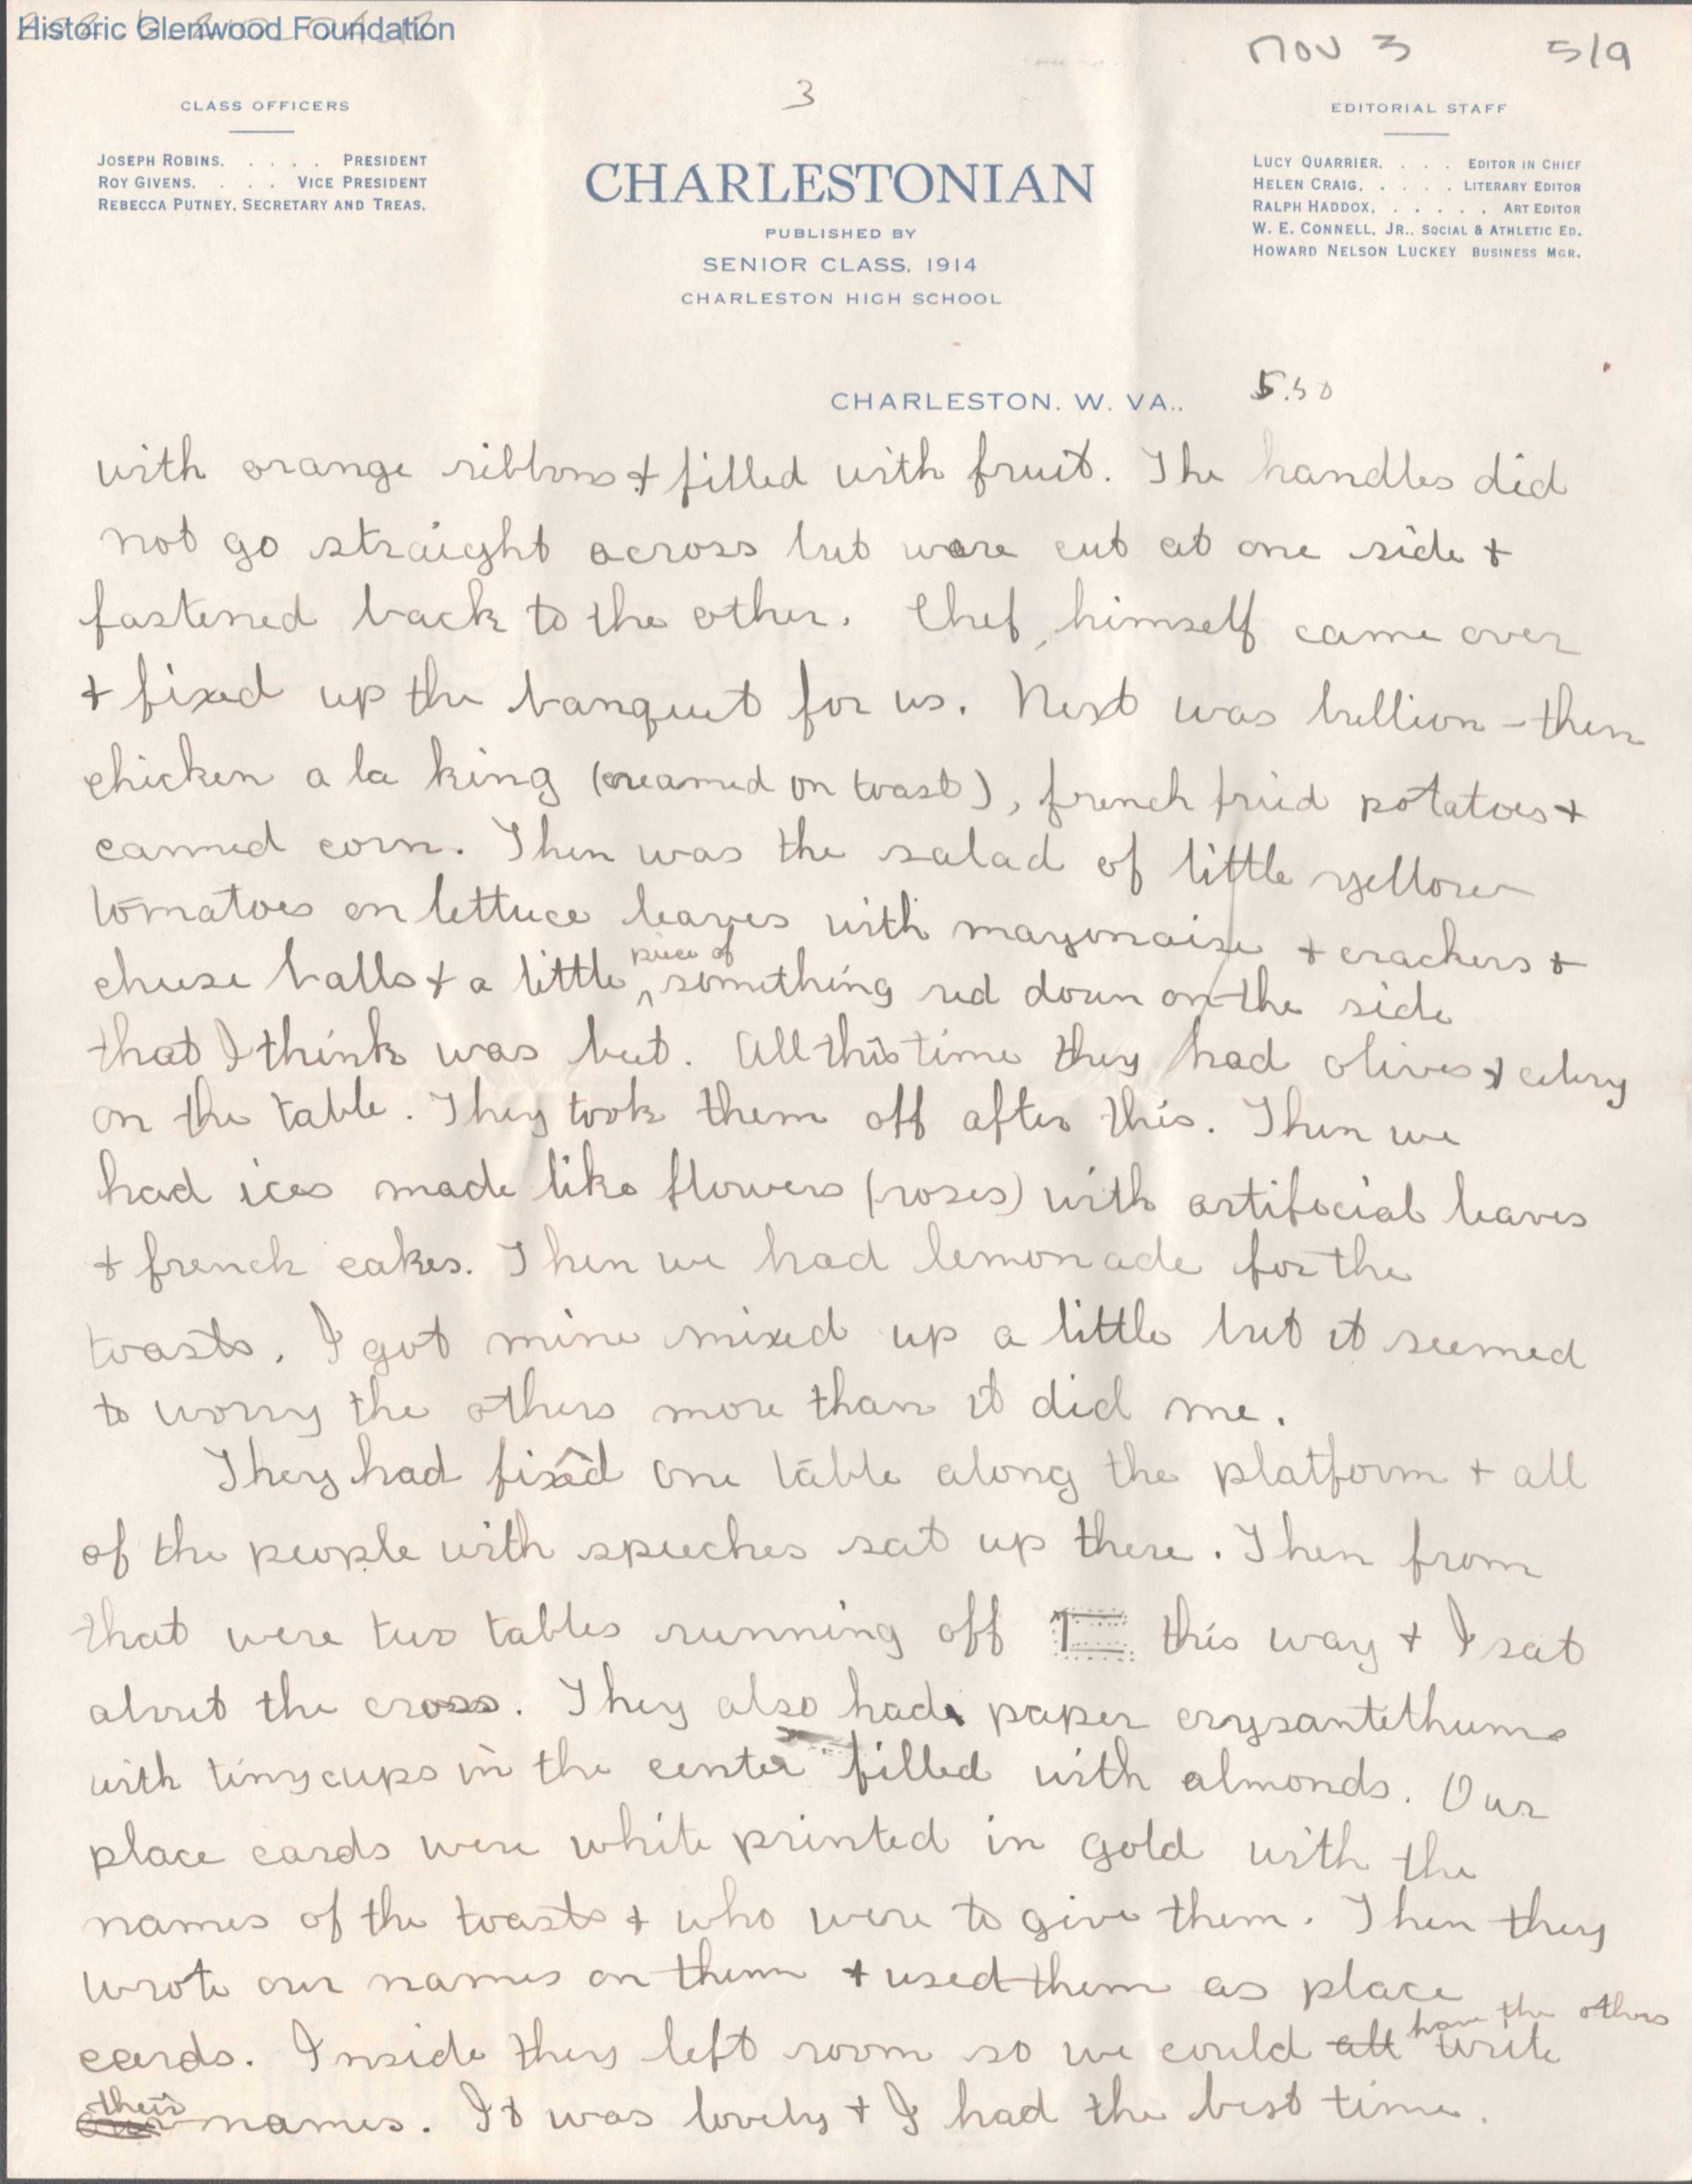 Historic Glenwood Foundation
Nov 3 519
3
CLASS OFFICERS
JOSEPH ROBINS. . . . . PRESIDENT
ROY GIVENS. . . . VICE PRESIDENT
REBECCA PUTNEY, SECRETARY AND TREAS.
CHARLESTONIAN
PUBLISHED BY
SENIOR CLASS, 1914
CHARLESTON HIGH SCHOOL
EDITORIAL STAFF
LUCY QUARRIER. . . . EDITOR IN CHIEF
HELEN CRAIG, . . . . LITERARY EDITOR
RALPH HADDOX, . . . . . ART EDITOR
W. E. CONNELL, JR., SOCIAL & ATHLETIC ED.
HOWARD NELSON LUCKEY BUSINESS MGR.
CHARLESTON, W. VA.. 5.50
with orange ribbons + filled with fruit. The handles did
not go straight across but were cut at one side +
fastened back to the other. Chef, himself came over
+ fixed up the banquet for us. Next was bullion - then
chicken a la king (creamed on toast), french fried potatoes +
canned corn. Then was the salad of little yellow
tomatoes on lettuce leaves with mayonaise + crackers +
cheese balls + a little piece of something red down on the side
that I think was beet. All this time they had olives + celery
on the table. They took them off after this. Then we
had ices made like flowers (roses) with artificial leaves
+ french cakes. Then we had lemonade for the
toasts. I got mine mixed up a little but it seemed
to worry the others more than it did me.
They had fixed one table along the platform + all
of the people with speeches sat up there. Then from
that were two tables running off this way + I sat
about the cross. They also had paper crysantethums
with tiny cups in the center filled with almonds. Our
place cards were white printed in gold with the
names of the toasts + who were to give them. Then they
wrote our names on them + used them as place
cards. Inside they left room so we could all have the others write
their names. It was lovely + I had the best time.